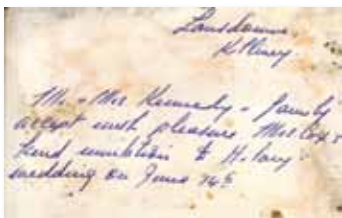 Lansdowne
Mr. & Mrs Kennedy & family
accept with pleasure Mrs Cox's
kind invitation to Hilary's
wedding on June